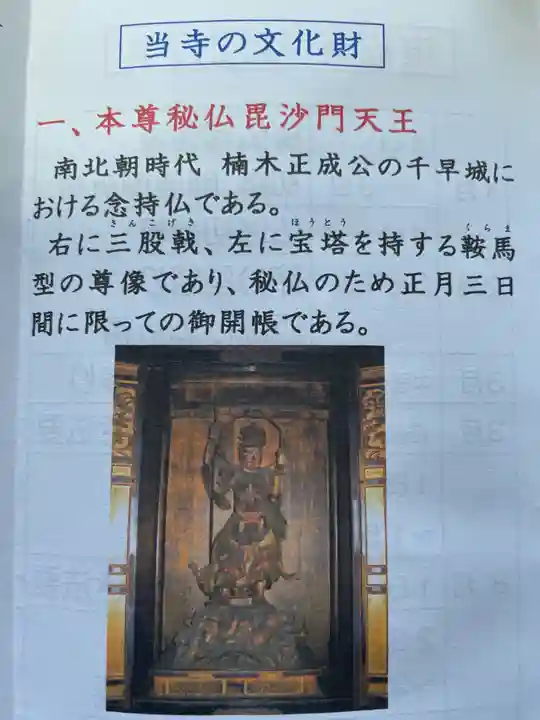 当寺の文化財
一、本尊秘仏毘沙門天王
南北朝時代 楠木正成公の千早城に
おける念持仏である。
さんこげき ほうとう くらま
右に三股戟、左に宝塔を持する鞍馬
型の尊像であり、秘仏のため正月三日
間に限っての御開帳である。